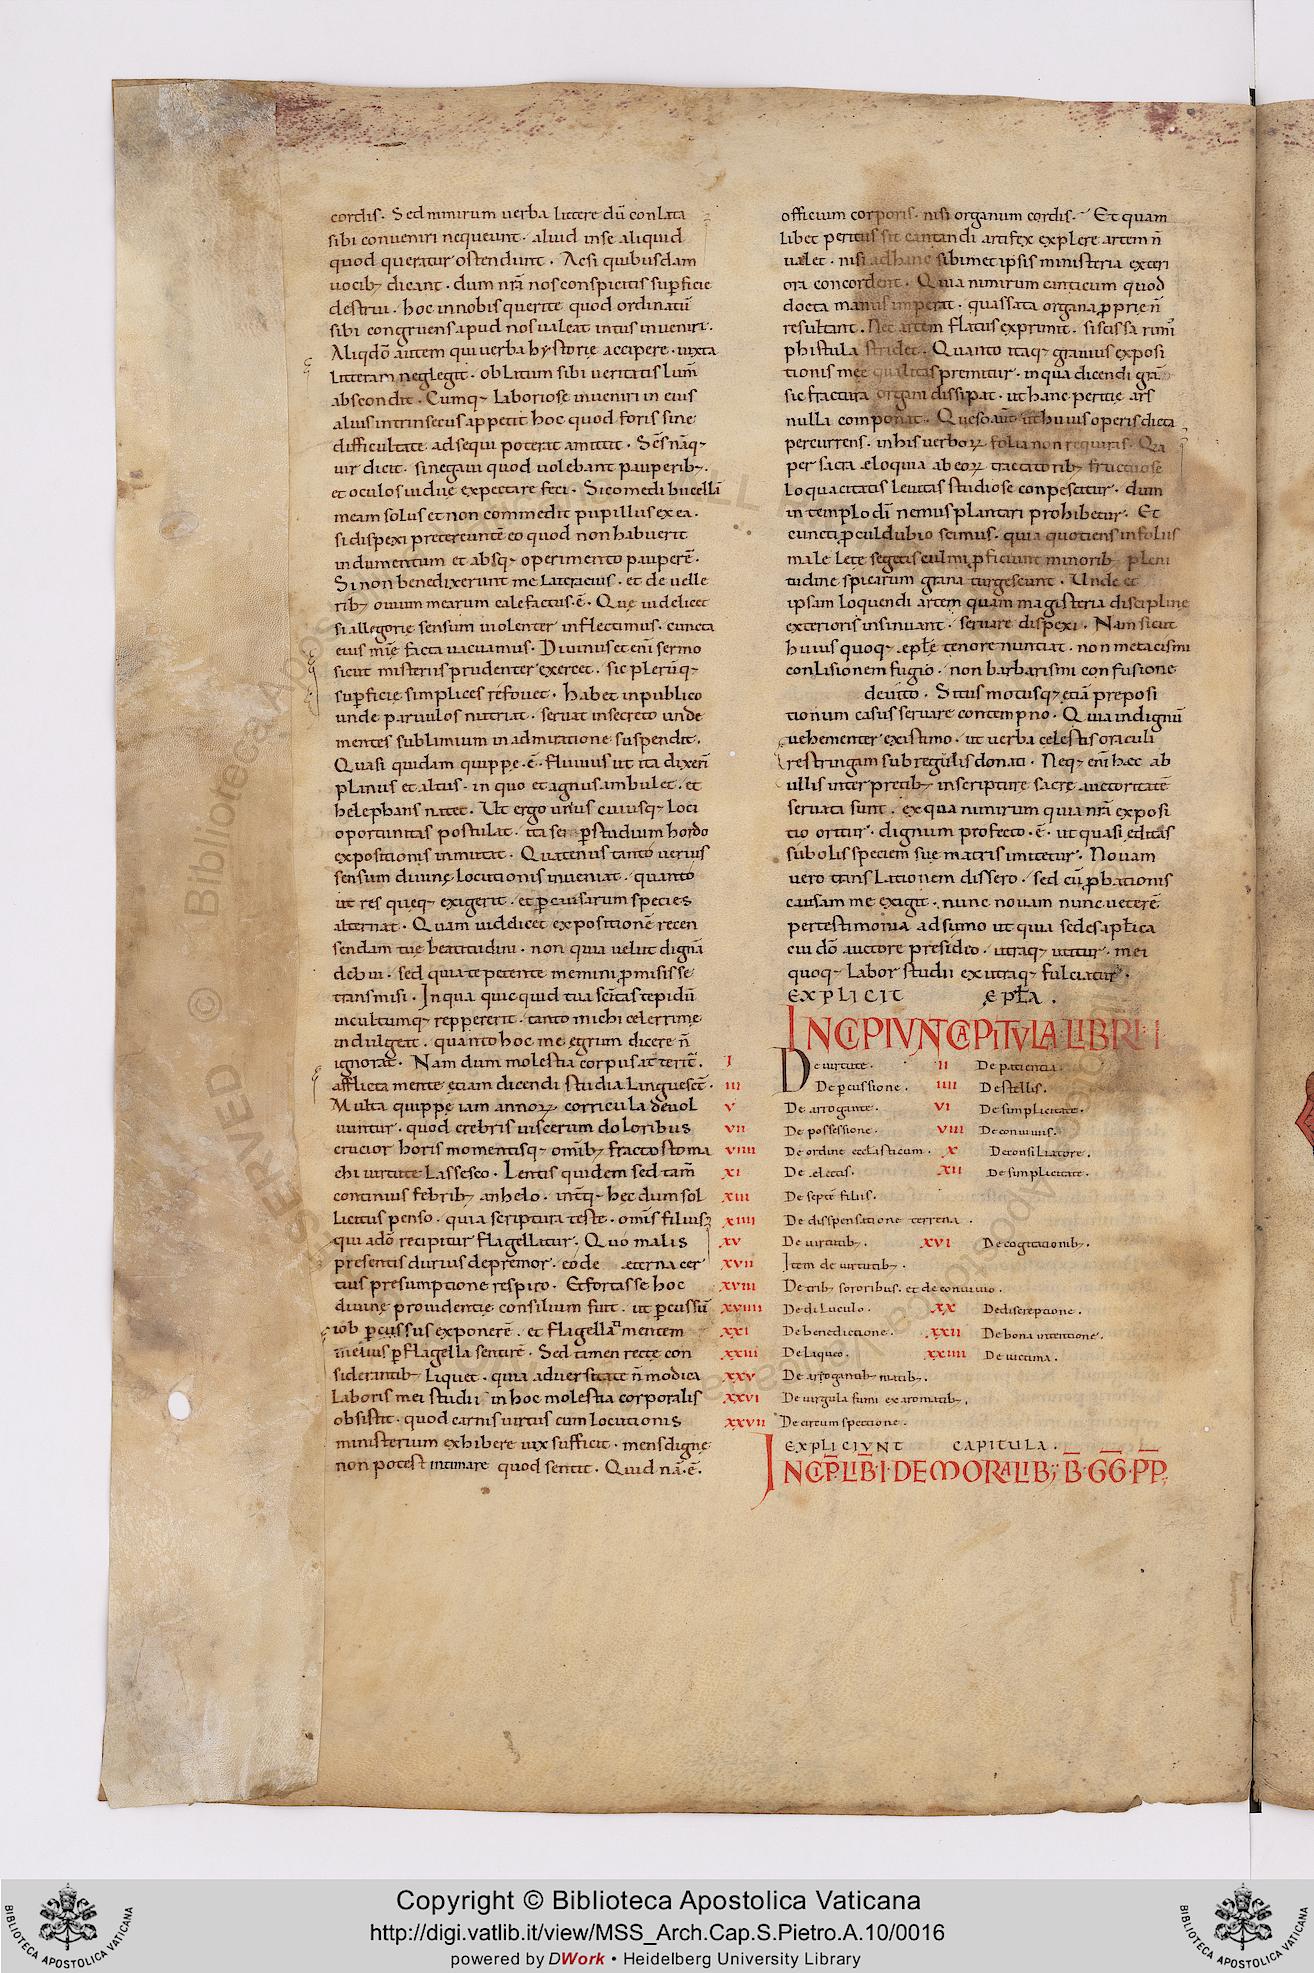 cordis. Sed nimirum uerba littere dũ conlata
sibi conueniri nequeunt. aliud inse aliquid
quod queratur ostendunt. Acsi quibusdam
uocib; dicant. dum nr̃a nos conspicitis supficie
destrui. hoc innobis querite quod ordinatũ
sibi congruens apud nos ualeat intus inueniri.
Aliqdõ autem qui uerba hystorie accipere. iuxta
litteram neglegit. oblatum sibi ueritatis lum̃
abscondit. Cumq; laboriose inueniri in eius
alius intrinsecus appetit hoc quod foris sine
difficultate adsequi poterat amittit. Sc̃s nãq;
uir dicit. si negaui quod uolebant pauperib;.
et oculos uiduę expectare feci. Si comedi bucellã
meam solus et non commedit pupillus ex ea.
si dispexi pretereuntẽ eo quod non habuerit
indumentum et absq; operimento pauperẽ.
Si non benedixerunt me latera eius. et de uelle
rib; ouium mearum calefactus. ẽ. Quę uidelicet
si allegorie sensum uiolenter inflectimus. cuncta
eius mĩe facta uacuamus. Diuinus etenĩ sermo
sicut misteriis prudenter exercet. sic plerũq;
supficie simplices refouet. habet inpublico
unde paruulos nutriat. seruat insecreto unde
mentes sublimium in admiratione suspendit.
Quasi quidam quippe. ẽ. fluuius ut ita dixerĩ
planus et altus. in quo et agnus ambulet. et
helephans natet. Ut ergo unius cuiusq; loci
oportunitas postulat. ita se p̱ studium hordo
expositionis inmutat. Quatenus tanto uerius
sensum diuinę locutionis inueniat. quanto
ut res quęq; exigerit. et p̱ causarum species
alternat. Quam uidelicet expositionẽ recen
sendam tuę beatitudini. non quia uelut dignã
debui. sed quia te petente memini p̱misisse
transmisi. In qua quicquid tua sc̃itas tepidũ
incultumq; reppererit. tanto michi celerrime
indulgeat. quanto hoc me egrum dicere ñ
ignorat. Nam dum molestia corpus atteritˉ.
afflicta mente etiam dicendi studia languescˉt.
Multa quippe iam annoꝝ corricula deuol
uuntur. quod crebris uiscerum doloribus
crucior horis momentisq; om̃ib; fracto stoma
chi uirtute lassesco. Lentis quidem sed tam̃
continuis febrib; anhelo. int̃q; hec dum sol
licitus penso. quia scriptura teste. om̃is filius
qui adõ recipitur flagellatur. Quo malis
presentis durius depremor. eo de ęterna cer
tius presumptione respiro. Et fortasse hoc
diuinę prouidentie consilium fuit. ut p̱cussũ
iob p̱cussus exponerẽ. et flagellati mentem
melius p̱ flagella sentirẽ. Sed tamen recte con
siderantib; liquet. quia aduersitate ñ modica
laboris mei studii in hoc molestia corporalis
obsistit. quod carnis uirtus cum locutionis
ministerium exhibere uix sufficit. mens digne
non potest intimare quod sentit. Quid nã. ẽ.
officium corporis. nisi organum cordis. Et quam
libet peritus sit cantandi artifex explere artem ñ
ualet. nisi ad hanc sibimet ipsis ministeria exteri
ora concordent. Quia nimirum canticum quod
docta manus imperat. quassata organa p̱prie ñ
resultant. Nec artem flatus exprimit. si scissa rimĩ
phistula stridet. Quanto itaq; grauius exposi
tionis mee qualitas premitur. in qua dicendi grã
sic fractura organi dissipat. ut hanc peritie ars
nulla componat. Queso aut̃ ut huius operis dicta
percurrens. in his uerboꝝ folia non requiras. Qia
per sacra eloquia ab eoꝝ tractatorib; fructuose
loquacitatis leuitas studiose conpescitur. dum
in templo dĩ nemus plantari prohibetur. Et
cuncti p̱culdubio scimus. quia quotiens in foliis
male lete segetis culmi p̱ficiunt minorib; pleni
tudine spicarum grana turgescunt. Unde et
ipsam loquendi artem quam magisteria discipline
exterioris insinuant. seruare dispexi. Nam sicut
huius quoq; ep̃lę tenore nunciat. non metacismi
conlisionem fugio. non barbarismi confusione
deuito. Situs motusq; etiã preposi
tionum casus seruare contempno. Quia indignũ
uehementer existimo. ut uerba celestis oraculi
restringam sub regulis donati. Neq; enĩ hec ab
ullis interpretib; in scripture sacre auctoritatẽ
seruata sunt. ex qua nimirum quia nr̃a exposi
tio oritur. dignum profecto. ẽ. ut quasi editas
subolis speciem sue matris imitetur. Nouam
uero translationem dissero. sed cũ p̱bationis
causam me exigit. nunc nouam nunc ueterẽ
per testimonia adsumo ut quia sedes apl̃ica
cui dõ auctore presideo. utraq; utitur. mei
quoq; labor studii ex utraq; fulciatur.
EXPLICIT EPL̃A.
INCIPIVNT CAPITVLA LIBRI I
I De uirtute. II De patientia.
III De p̱cussione. IIII De stellis.
V De arrogante. VI De simplicitate.
VII De possessione. VIII De conuiuiis.
VIIII De ordine ecclasticum. X De consiliatore.
XI De electis. XII De simplicitate.
XIII De septẽ filiis.
XIIII De disspensatione terrena.
XV De uirtutib;. XVI De cogitationib;.
XVII Item de uirtutib;.
XVIII De trib; sororibus. et de conuiuio.
XVIIII De diluculo. XX De discreptione.
XXI De benedictione. XXII De bona intentione.
XXIII De laqueo. XXIIII De uictima.
XXV De arrogantib; matib;.
XXVI De uirgula fumi ex aromatib;.
XXVII De circumspectione.
EXPLICIVNT CAPITULA.
INCIP̃. LIB̃. I. DE MORALIB; B̃. GG̃. PP̃.
Copyright © Biblioteca Apostolica Vaticana
http://digi.vatlib.it/view/MSS_Arch.Cap.S.Pietro.A.10/0016
powered by DWork • Heidelberg University Library
BIBLIOTECA APOSTOLICA VATICANA
BIBLIOTECA APOSTOLICA VATICANA